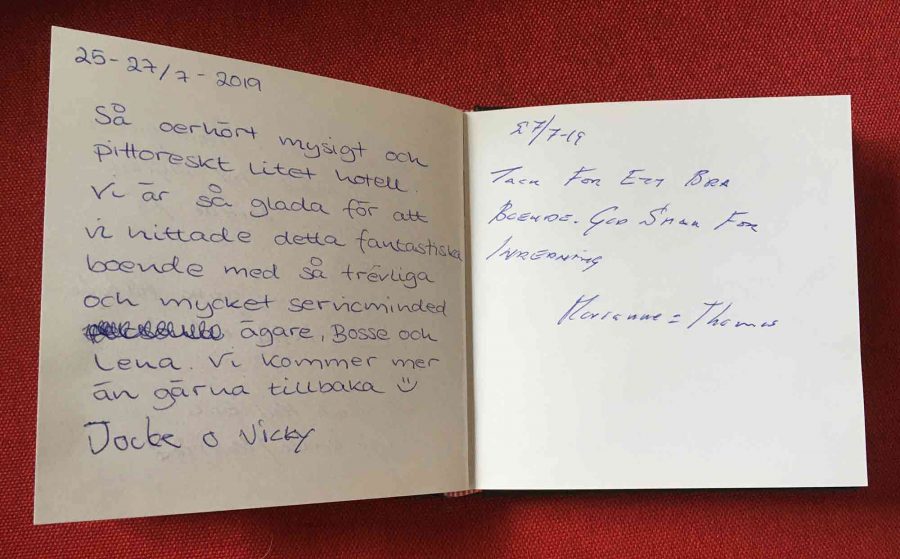 25-27/7-2019
Så oerhört mysigt och
pittoreskt litet hotell.
Vi är så glada för att
vi hittade detta fantastiska
boende med så trevliga
och mycket servicminded
ägare, Bosse och
Lena. Vi kommer mer
än gärna tillbaka
Jocke o Vicky
27/7-19
TACK FÖR ETT BRA
BOENDE. GOD SMAK FÖR
INREDNING
Marianne = Thomas